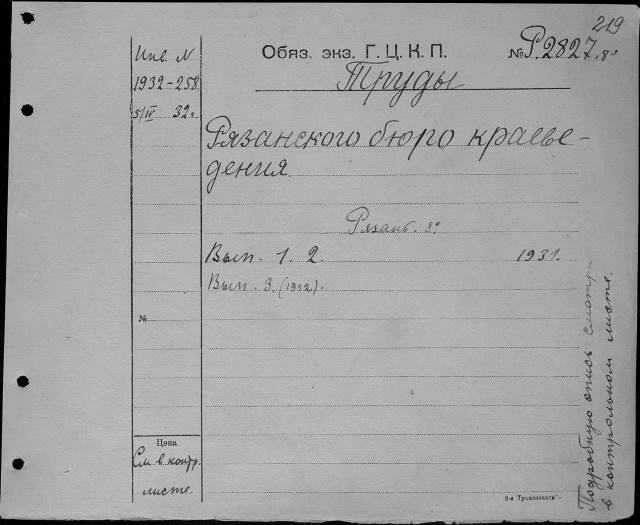 219
Инв. N
1932-258
5/IV 32 г.
Обяз. экз. Г.Ц.К.П. № Р.2827, 8°
Труды
Рязанского бюро краеве-
дения.
Рязань. 8°
Вып. 1. 2. 1931.
Вып. 3. (1932).
№
Цена
См. в контр.
листе.
Подробную опись смотр.
в контрольном листе.
3-я